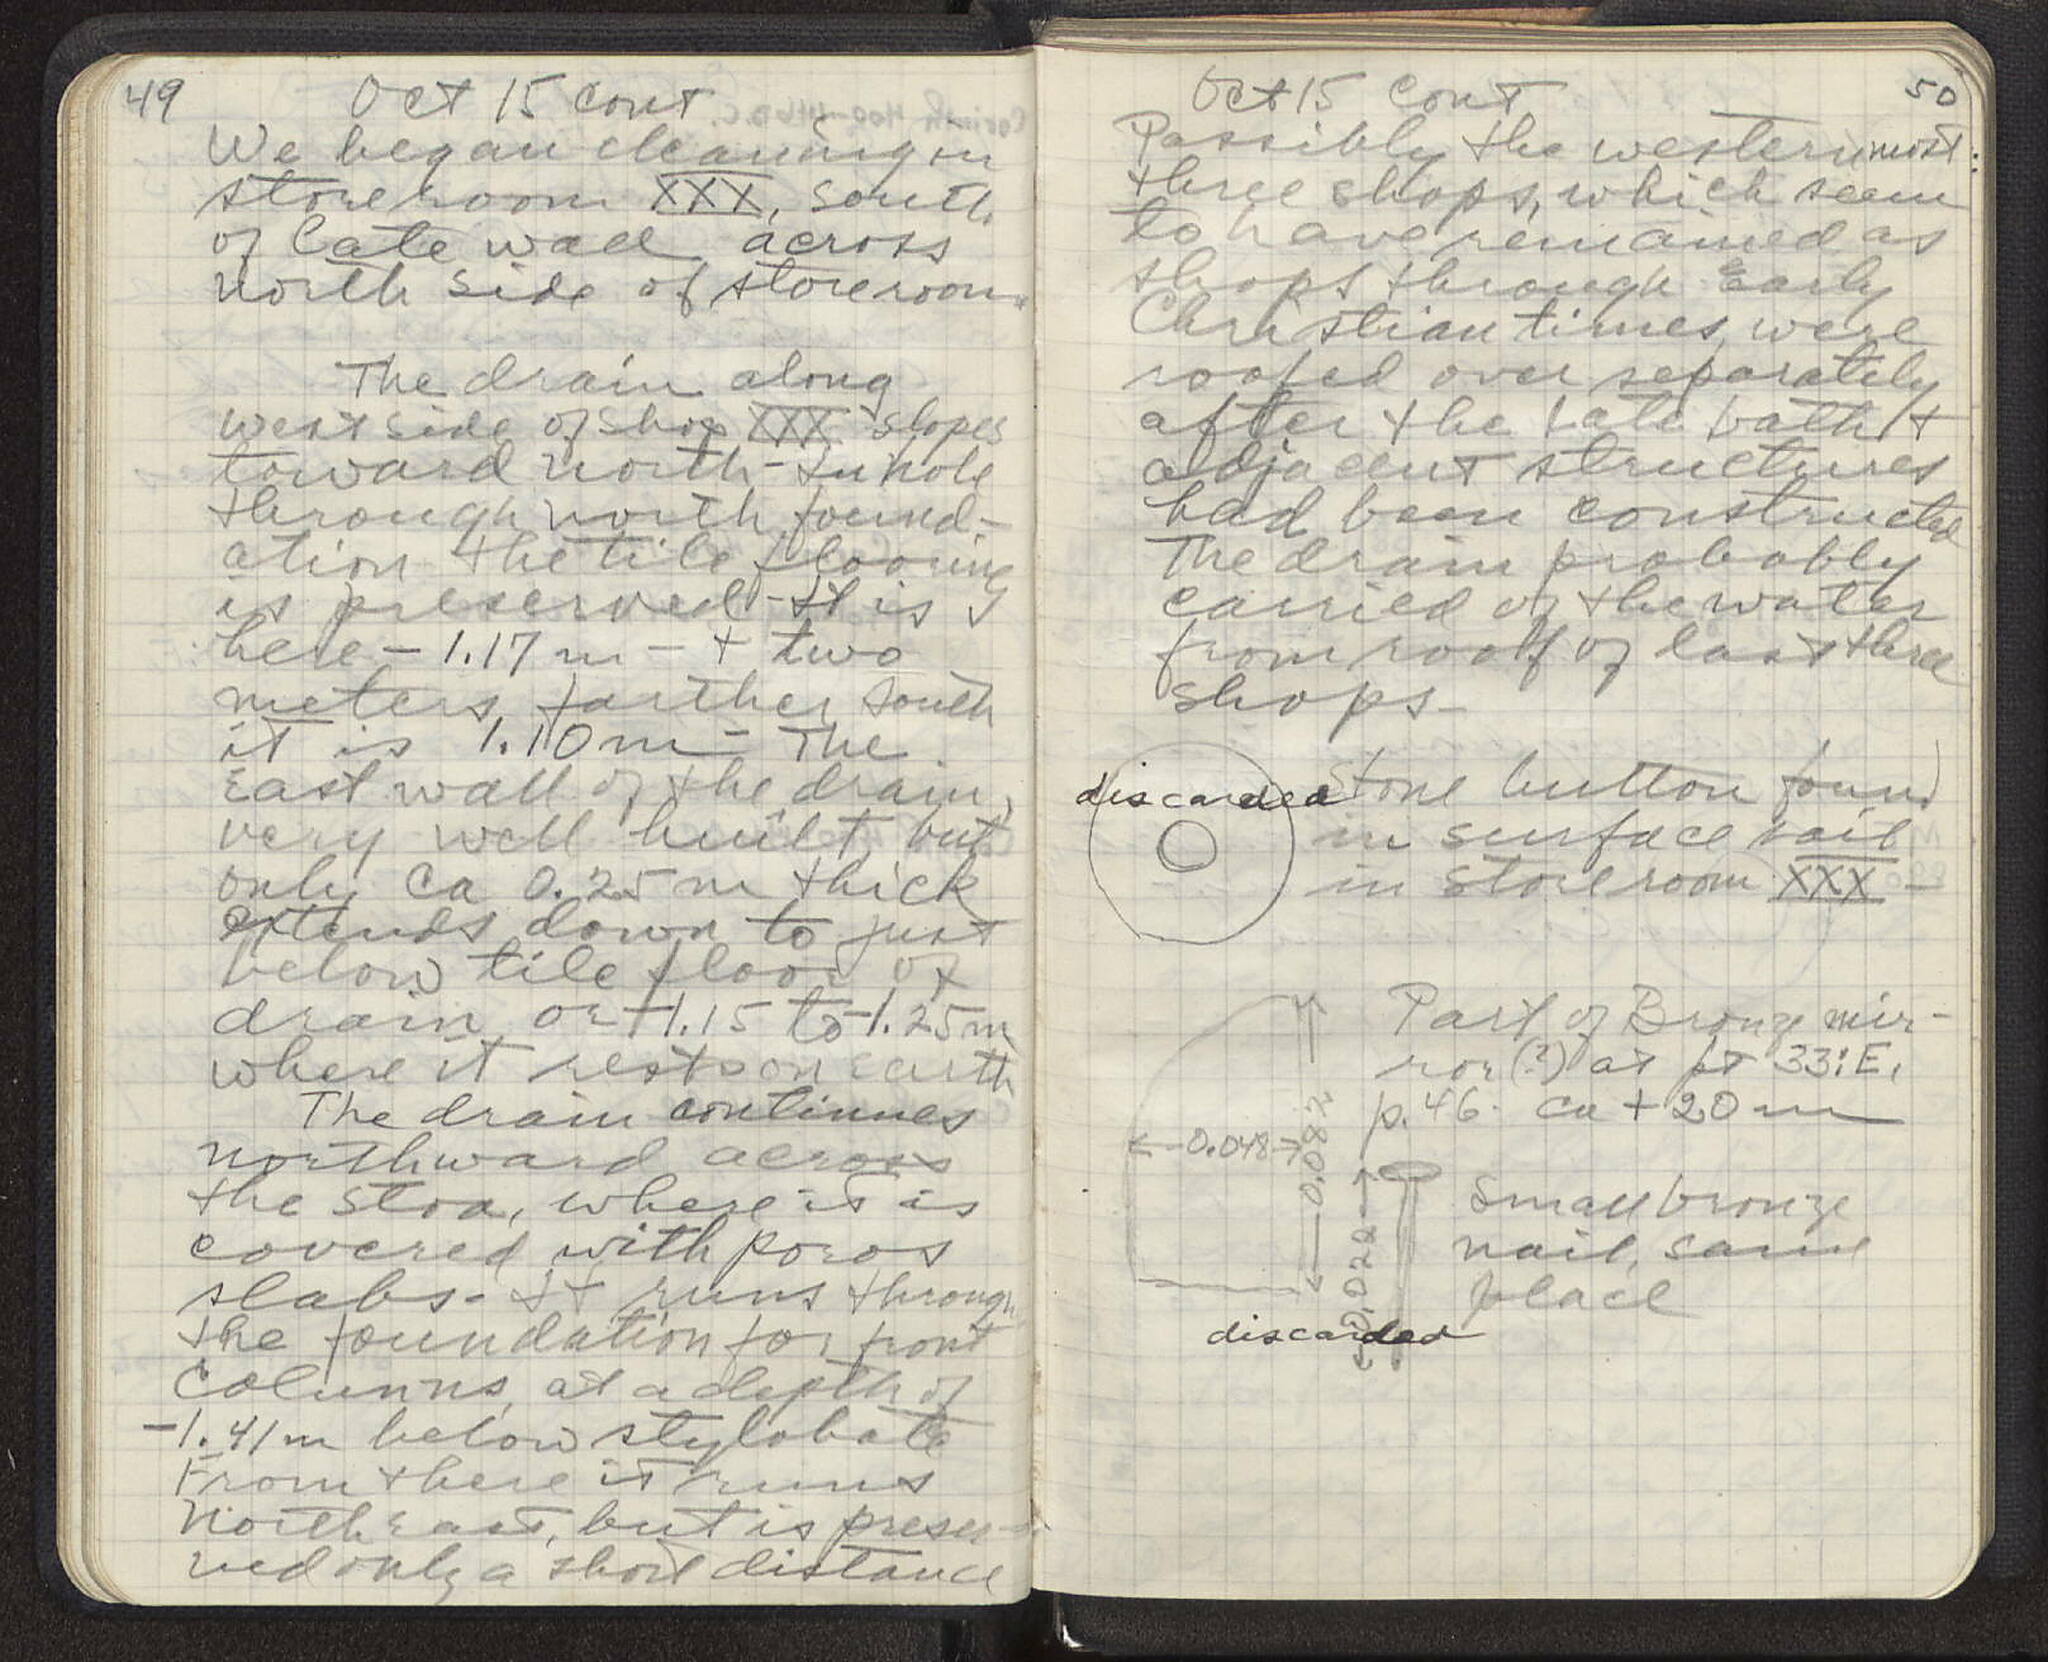 49
Oct 15 cont
We began cleaning in
storeroom XXX, south
of late wall across
north side of storeroom.
The drain along
west side of shop XXX slopes
toward north - In hole
through north found-
ation the tile flooring
is preserved - It is
here - 1.17 m - + two
meters farther south
it is 1.10 m - The
East wall of the drain,
very well built, but
only ca 0.25 m thick
extends down to just
below tile floor of
drain, or -1.15 to -1.25 m
where it rests on earth
The drain continues
northward across
the stoa, where it is
covered with poros
slabs - It runs through
the foundation for front
columns, at a depth of
-1.41 m below stylobate
From there it runs
North east, but is preser-
ved only a short distance
50
Oct 15 cont
Possibly the westernmost
three shops, which seem
to have remained as
shops through Early
Christian times, were
roofed over separately
after the late bath +
adjacent structures
had been constructed
The drain probably
carried of the water
from roof of last three
shops -
discarded
Stone button found
in surface soil
in storeroom XXX -
Part of Bronze mir-
ror (?) at pt 33:E,
p. 46. ca + 20 m
0.048
0.082
Small bronze
nail, same
place
0.022
discarded